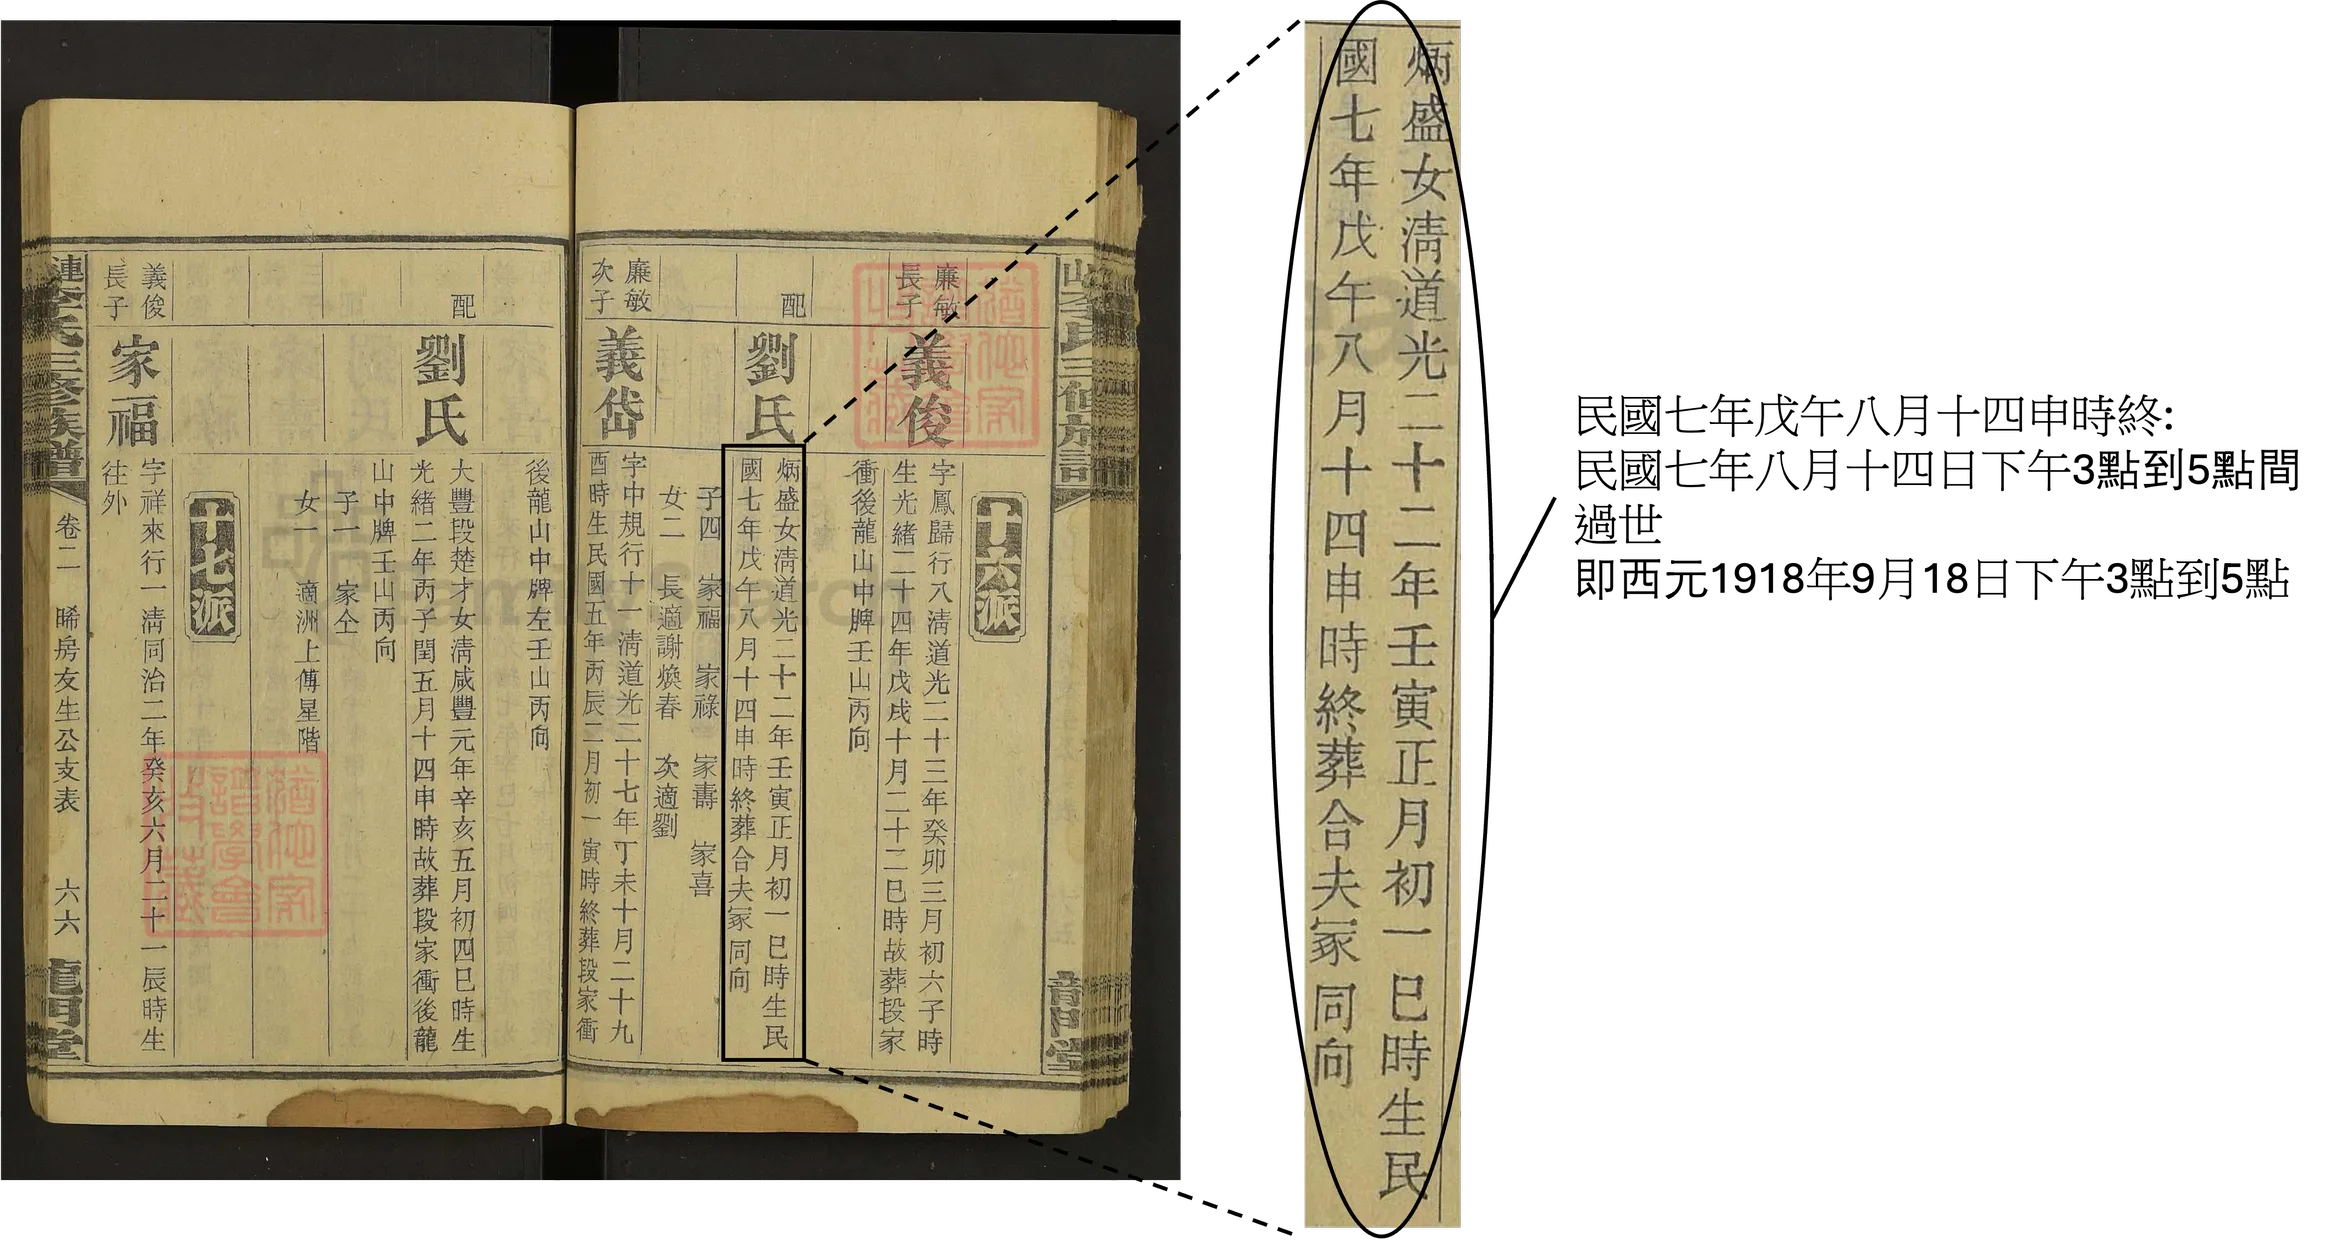 十六派
廉敏
長子
義俊
字鳳歸行八清道光二十三年癸卯三月初六子時
生光緒二十四年戊戌十月二十二巳時故葬段家
衝後龍山中牌壬山丙向
配
劉氏
炳盛女清道光二十二年壬寅正月初一巳時生民
國七年戊午八月十四申時終葬合夫冢同向
子四 家福 家祿 家壽 家喜
女二 長適謝煥春 次適劉
廉敏
次子
義岱
字中規行十一清道光二十七年丁未十月二十九
酉時生民國五年丙辰二月初一寅時終葬段家衝
後龍山中牌左壬山丙向
配
劉氏
大豐段楚才女清咸豐元年辛亥五月初四巳時生
光緒二年丙子閏五月十四申時故葬段家衝後龍
山中牌壬山丙向
子一 家仝
女一 適洲上傅星階
十七派
義俊
長子
家福
字祥來行一清同治二年癸亥六月二十一辰時生
往外
漣李氏三修族譜
卷二 晞房友生公支表 六六
龍門堂
FamilySearch
炳盛女清道光二十二年壬寅正月初一巳時生民
國七年戊午八月十四申時終葬合夫冢同向
民國七年戊午八月十四申時終:
民國七年八月十四日下午3點到5點間
過世
即西元1918年9月18日下午3點到5點